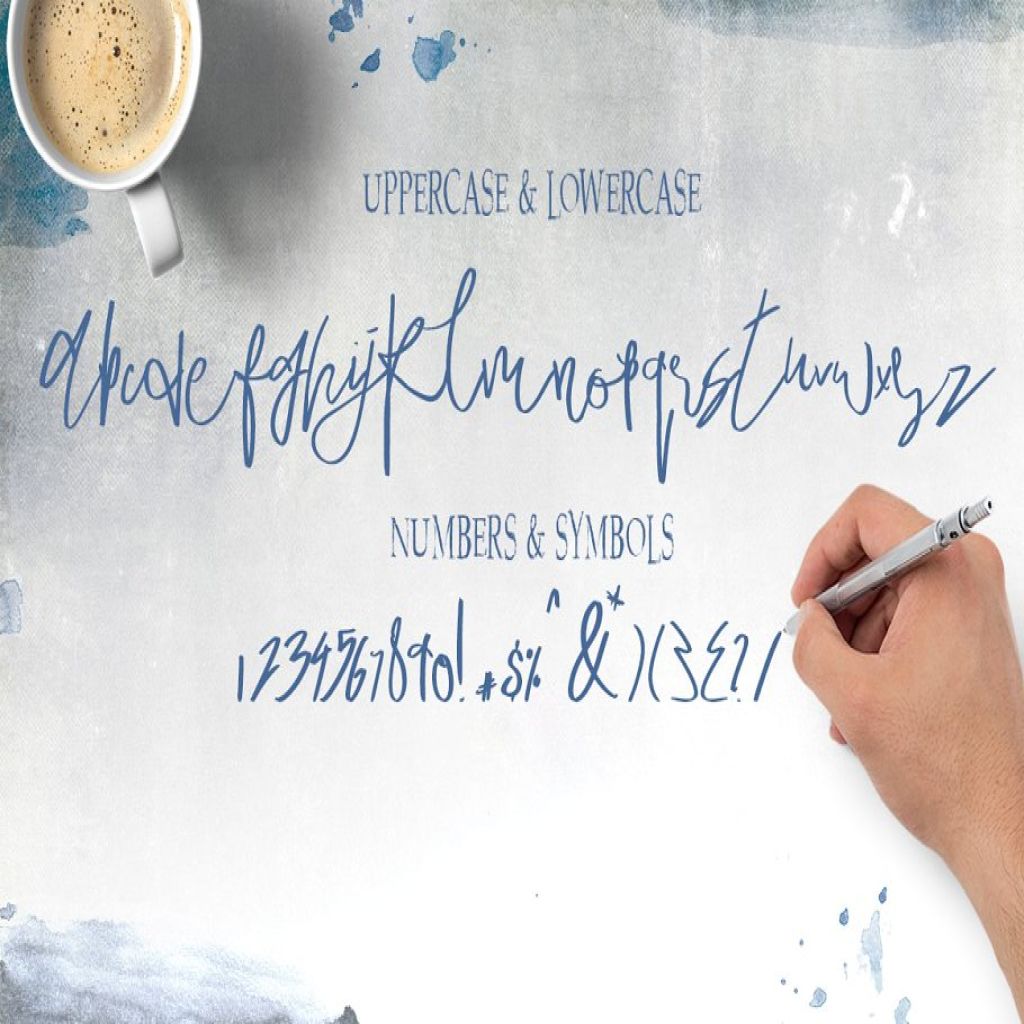 UPPERCASE & LOWERCASE
abcdefghijklmnopqrstuvwxyz
NUMBERS & SYMBOLS
1234567890!#$%^&*)(}{?/